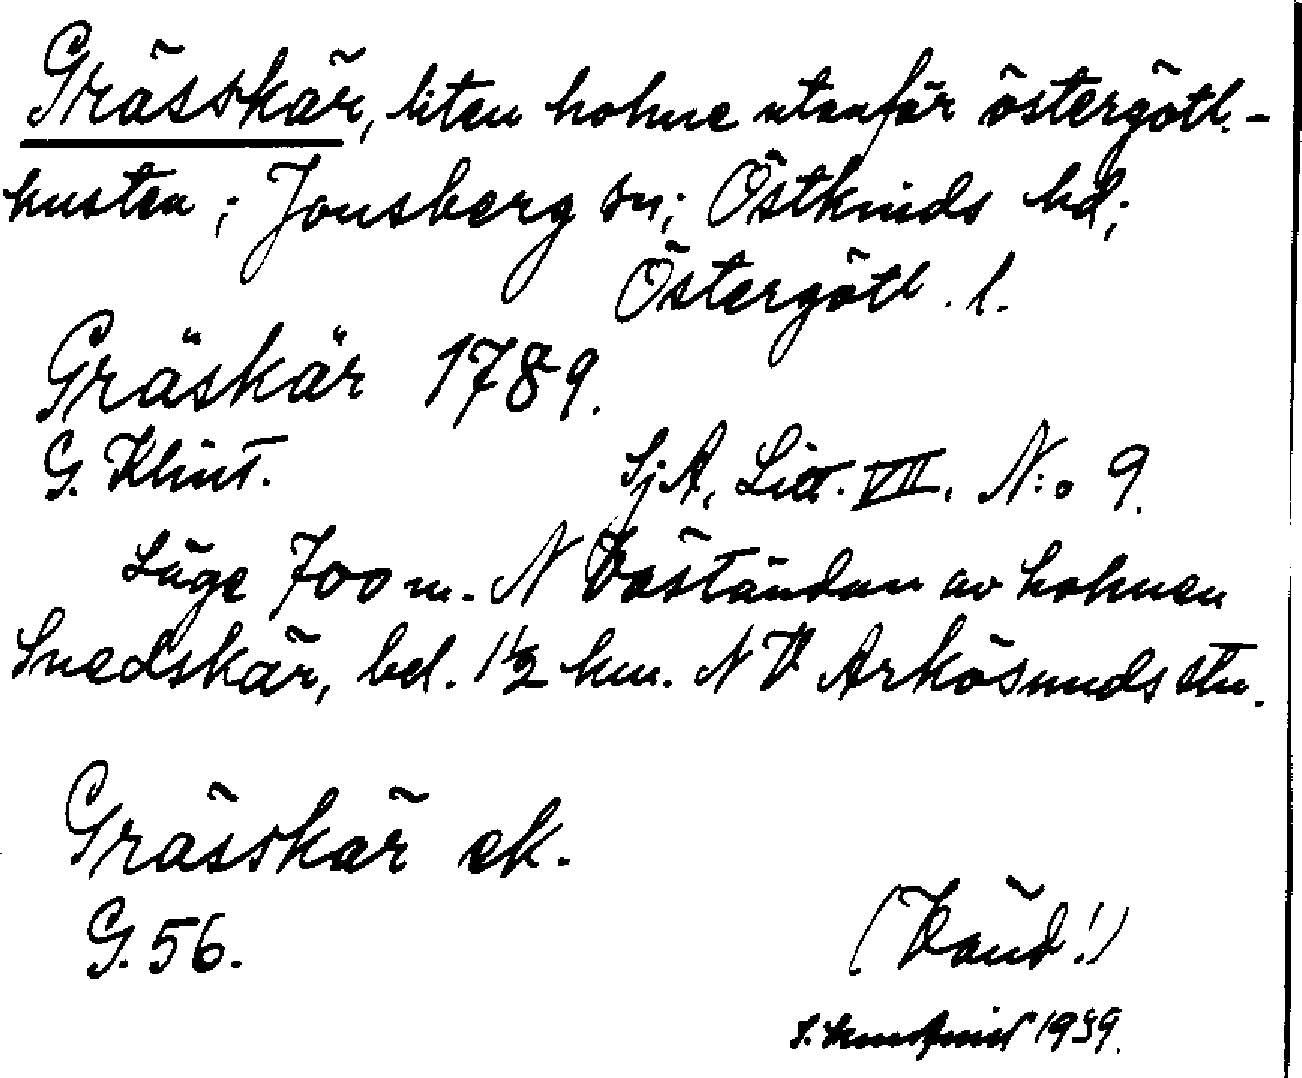 Grässkär, liten holme utanför östergötl.-
kusten; Jonsberg sn; Östkinds hd;
Östergötl. l.
Gräskär 1789.
G. Klint. SjA, Litt. VII. N:o 9.
Läge 700 m. N Väständan av holmen
Snedskär, bel. 1½ km. NV Arkösunds stn.
Grässkär ek.
G. 56.
(Vänd!)
1939.